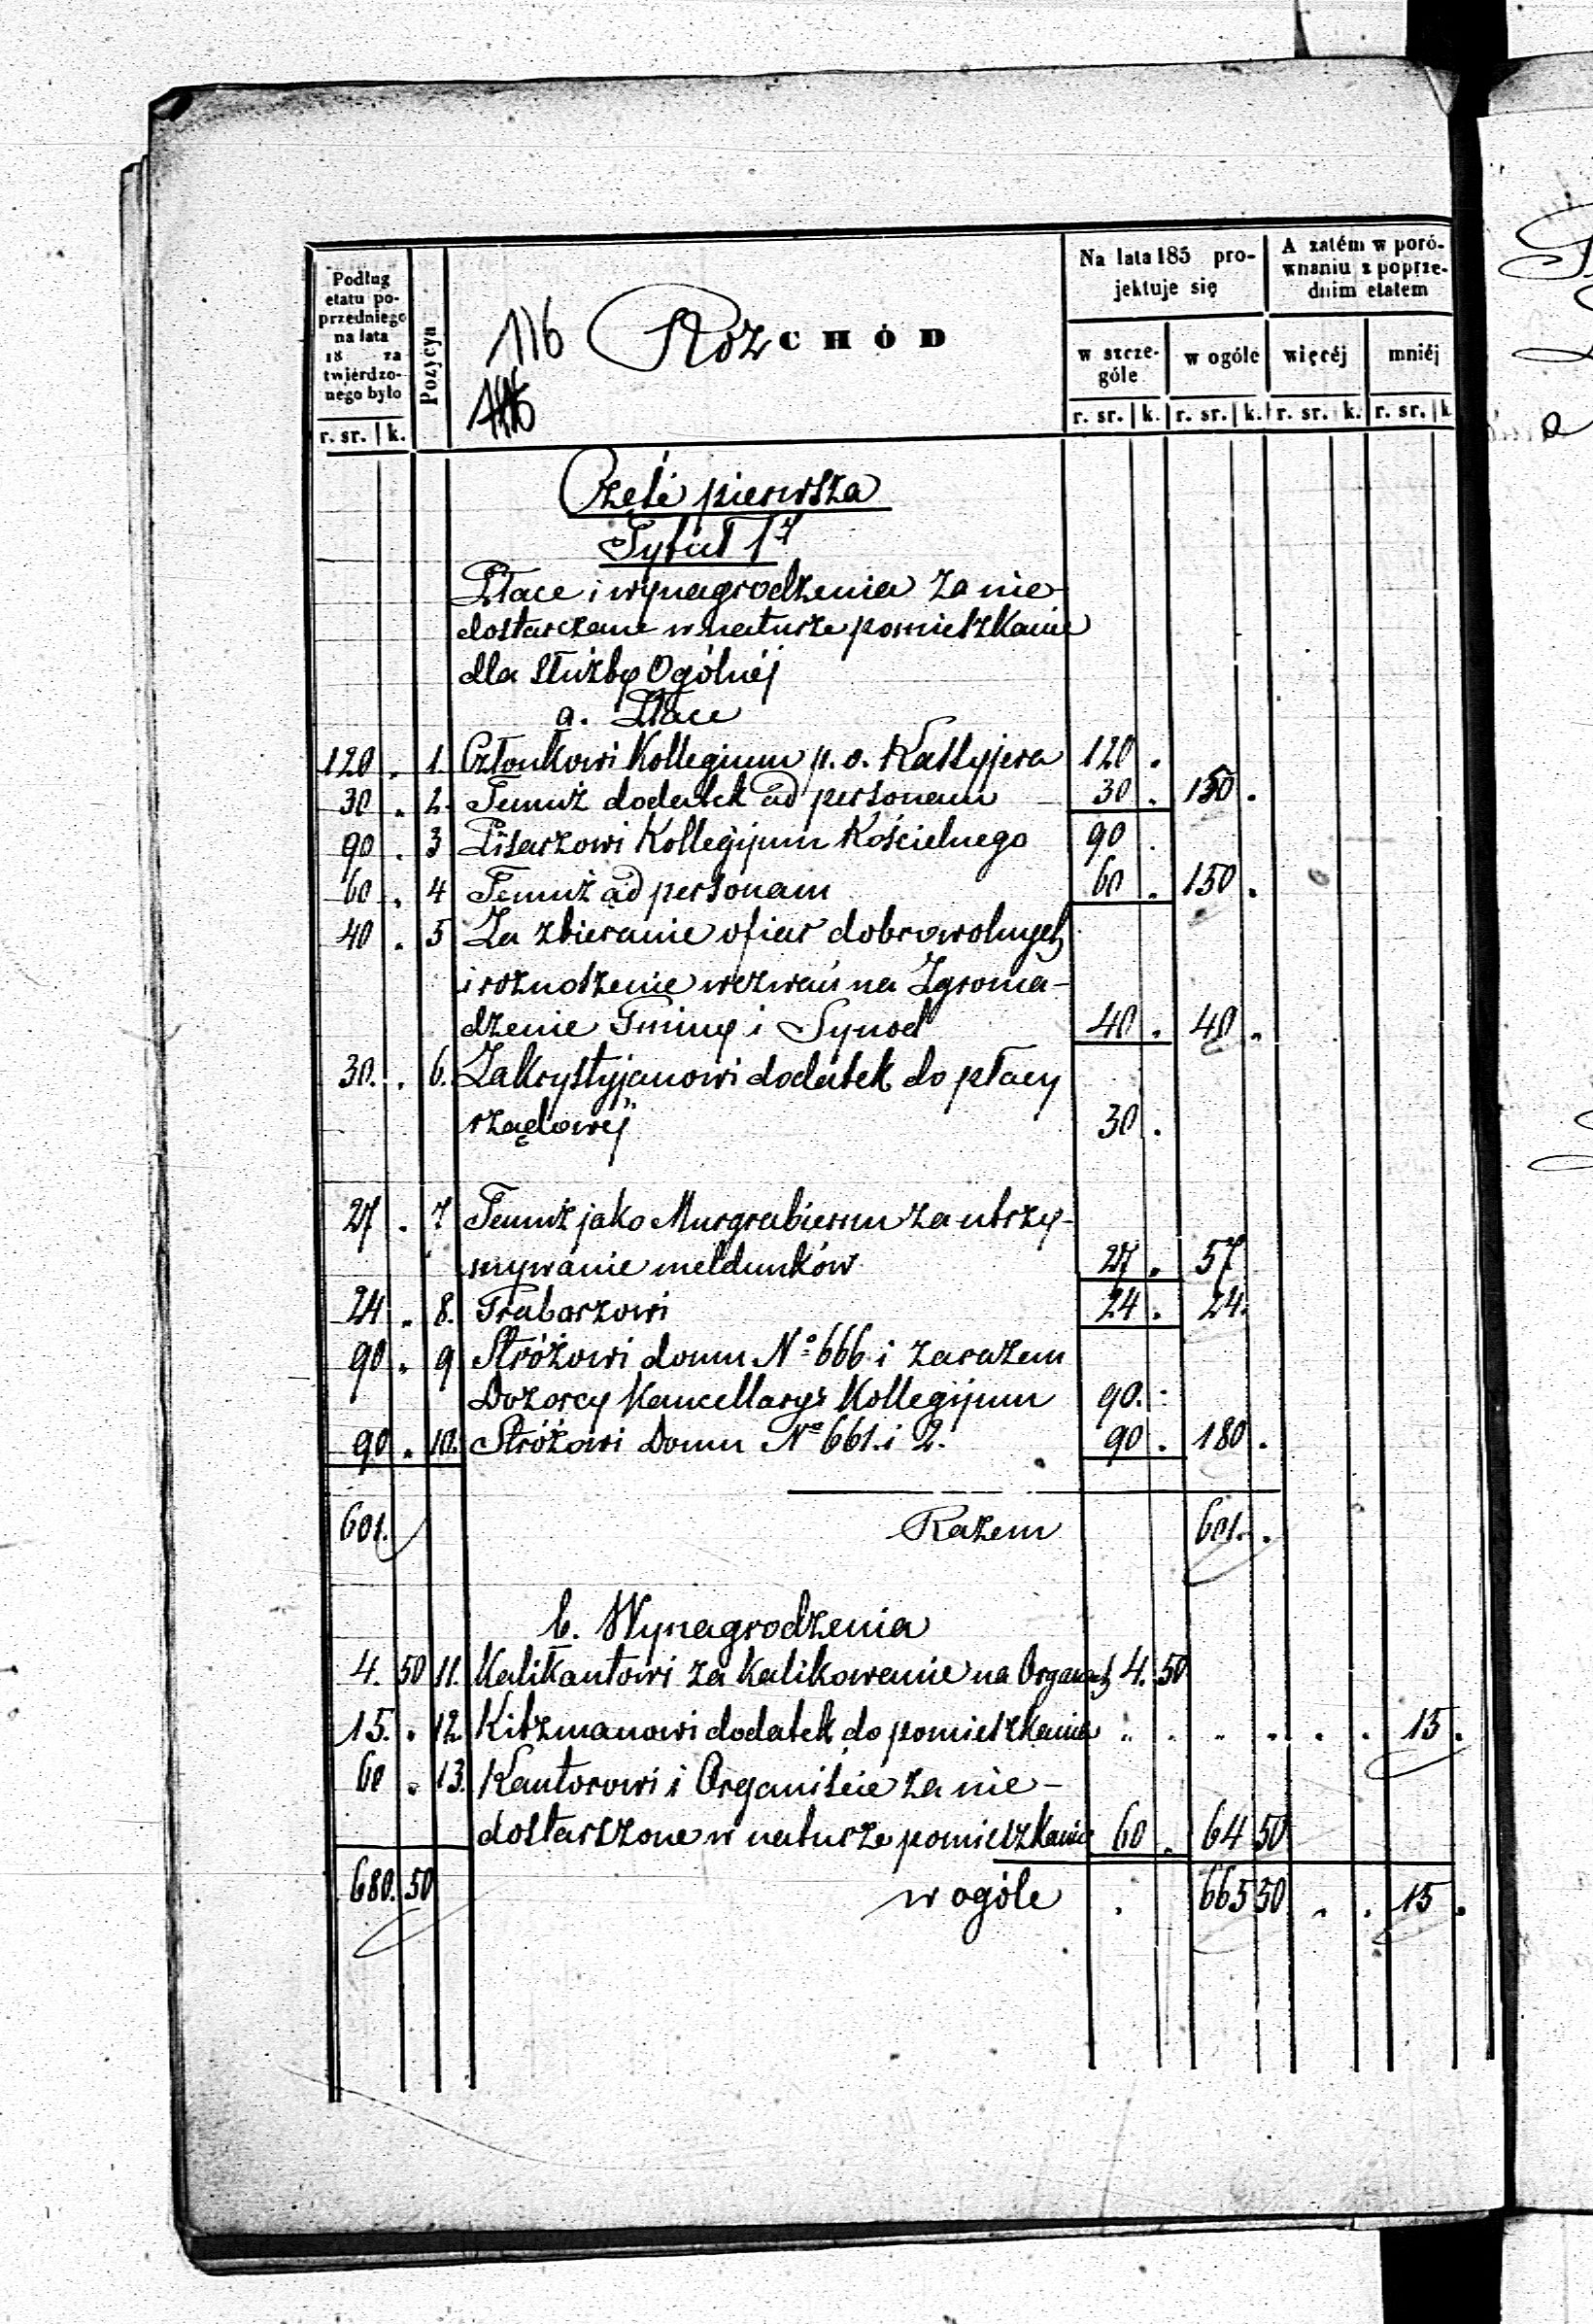 Podług
etatu po-
przedniego
na lata
18 za
twierdzo-
nego było
r. sr. k.
Pozycya
116
RozCHÓD
Na lata 185 pro-
jektuje się
w szcze-
góle
w ogóle
A zatém w poró-
wnaniu z poprze-
dnim etatem
więcéj
mniéj
r. sr. k. r. sr. k. r. sr. k. r. sr. k
Część pierwsza
Tytuł 1y
Płace i wynagrodzenia za nie-
dostarczane w naturze pomieszkanie
dla Służby Ogólnéj
a. Płace
120 . 1. Członkowi Kollegium p. o. Kassyjera 120 .
30 . 2. Temuż dodatek ad personam 30 . 150 .
90 . 3 Pisarzowi Kollegijum Kościelnego 90 .
60 . 4 Temuż ad personam 60 . 150 .
40 . 5 Za zbieranie ofiar dobrowolnych
i roznoszenie wezwań na Zgroma-
dzenie Gminy i Synod 40 . 40 .
30. . 6. Zakrystyjanowi dodatek do płacy
rządowéj 30 .
27 . 7 Temuż jako Murgrabiemu za utrzy-
mywanie meldunków 27 . 57
24 . 8. Grabarzowi 24 . 24.
90 . 9 Stróżowi domu No 666 i zarazem
Dozorcy Kancellaryi Kollegijum 90. .
90 . 10. Stróżowi Domu No 661. i 2. 90 . 180 .
601. Razem 601. .
b. Wynagrodzenia
4. 50 11. Kalikantowi za kalikowanie na Organach 4. 50
15. . 12. Kitzmanowi dodatek do pomieszkania . . . . . . 15 .
60 . 13. Kantorowi i Organiście za nie-
dostarszone w naturze pomieszkanie 60 . 64 50
680. 50 w ogóle . 665 50 . . 15 .